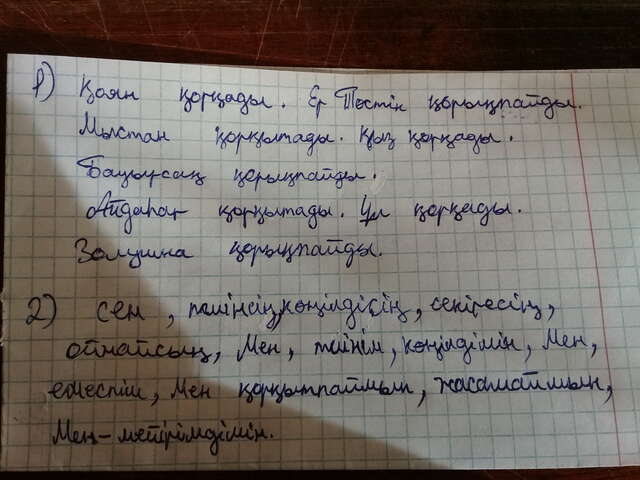 1) Қоян қорқады. Ер Төстік қорықпайды.
Мыстан қорқытады. Қыз қорқады.
Бауырсақ қорықпайды.
Айдаһар қорқытады. Ұл қорқады.
Золушка қорықпайды.
2) Сен, тиінсің, көңілдісің, секіресің,
ойнайсың, Мен, тиінім, көңілдімін, Мен,
емеспін, Мен қорқытпаймын, жасамаймын,
Мен - мейірімдімін.